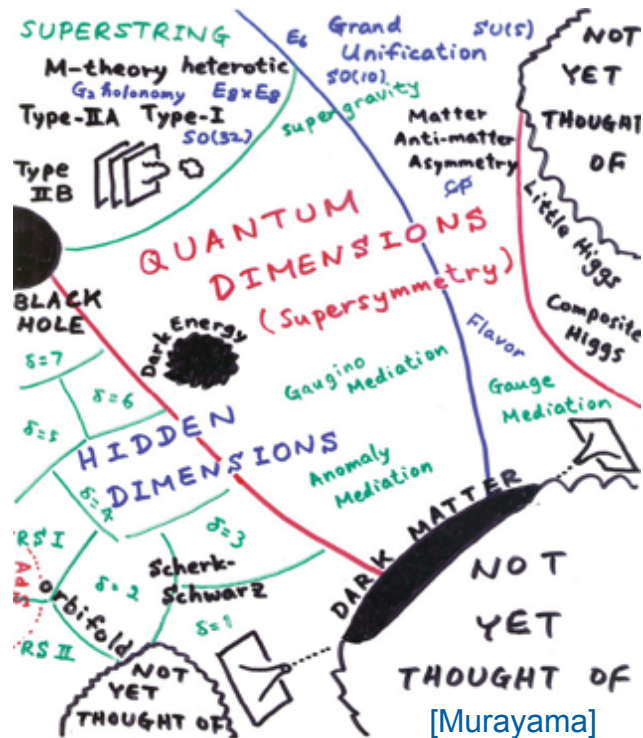 SUPERSTRING
M-theory heterotic
G₂ holonomy E8×E8
Type-IIA Type-I
SO(32)
Type
IIB
E6 Grand SU(5)
Unification
SO(10)
supergravity
Matter
Anti-matter
Asymmetry
CP
NOT
YET
THOUGHT
OF
Little Higgs
Composite
Higgs
QUANTUM
DIMENSIONS
(Supersymmetry)
BLACK
HOLE
Dark Energy
Flavor
Gaugino
Mediation
Gauge
Mediation
δ=7
δ=6
δ=5
HIDDEN
DIMENSIONS
Anomaly
Mediation
δ=4
δ=3
RS I
AdS
orbifold
δ=2
Scherk-
Schwarz
δ=1
RS II
DARK MATTER
NOT
YET
THOUGHT OF
NOT
YET
THOUGHT OF
[Murayama]